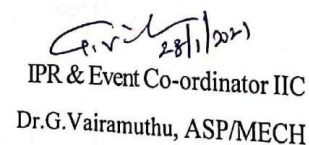 28/1/2021
IPR & Event Co-ordinator IIC
Dr.G.Vairamuthu, ASP/MECH